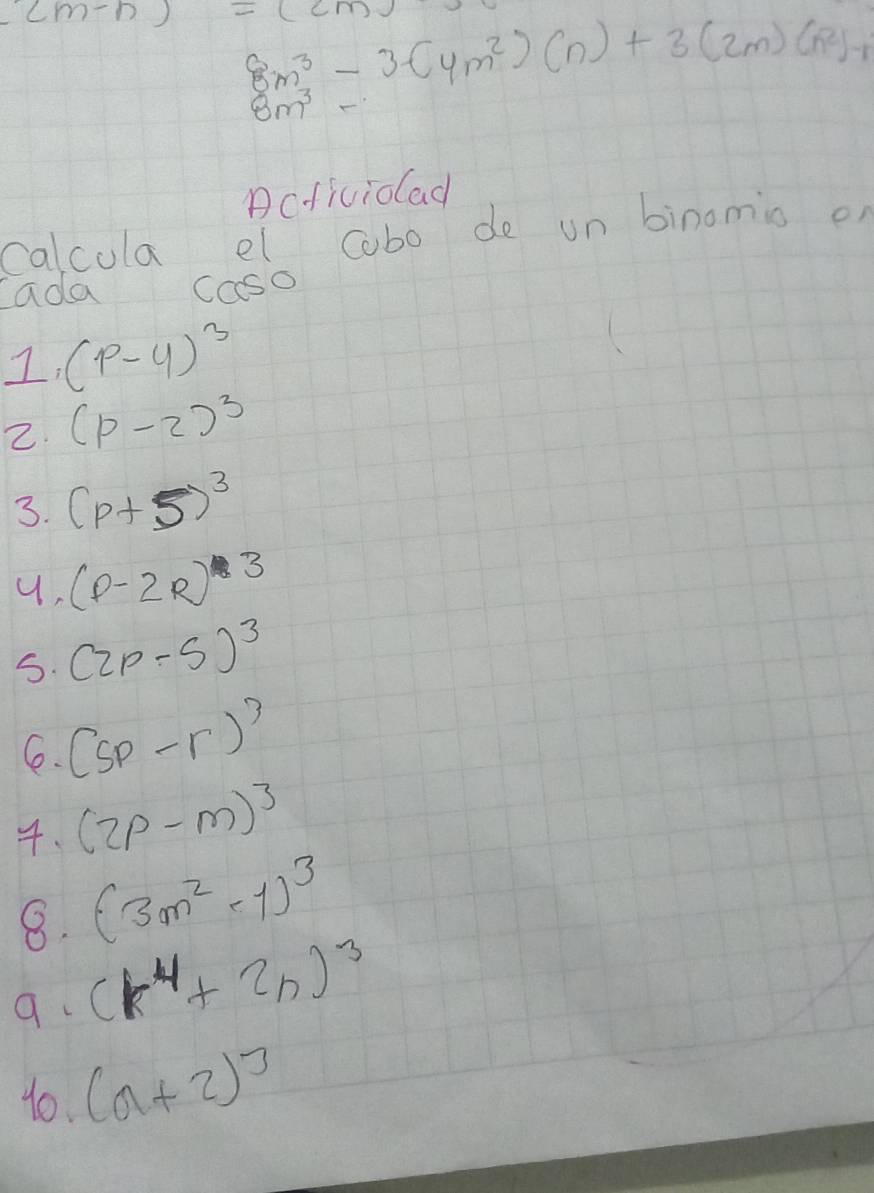 (2m-n) = (2m)
8m³ - 3(4m²)(n) + 3(2m)(n²)-
8m³ -
Actividad
Calcula el cubo de un binomio en
cada caso
1. (p-4)³
2. (p-2)³
3. (p+5)³
4. (p-2R)³
5. (2p-5)³
6. (5p-r)³
7. (2p-m)³
8. (3m²-1)³
9. (k⁴+2n)³
10. (a+2)³